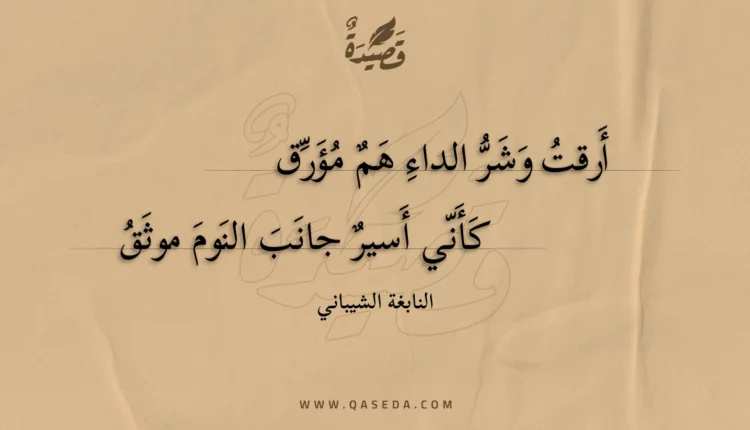 قَصِيدَةٌ
أَرقتُ وَشَرُّ الداءِ هَمٌ مُؤَرِّق
كَأَنّي أَسيرٌ جانَبَ النَومَ موثَقُ
النابغة الشيباني
WWW.QASEDA.COM